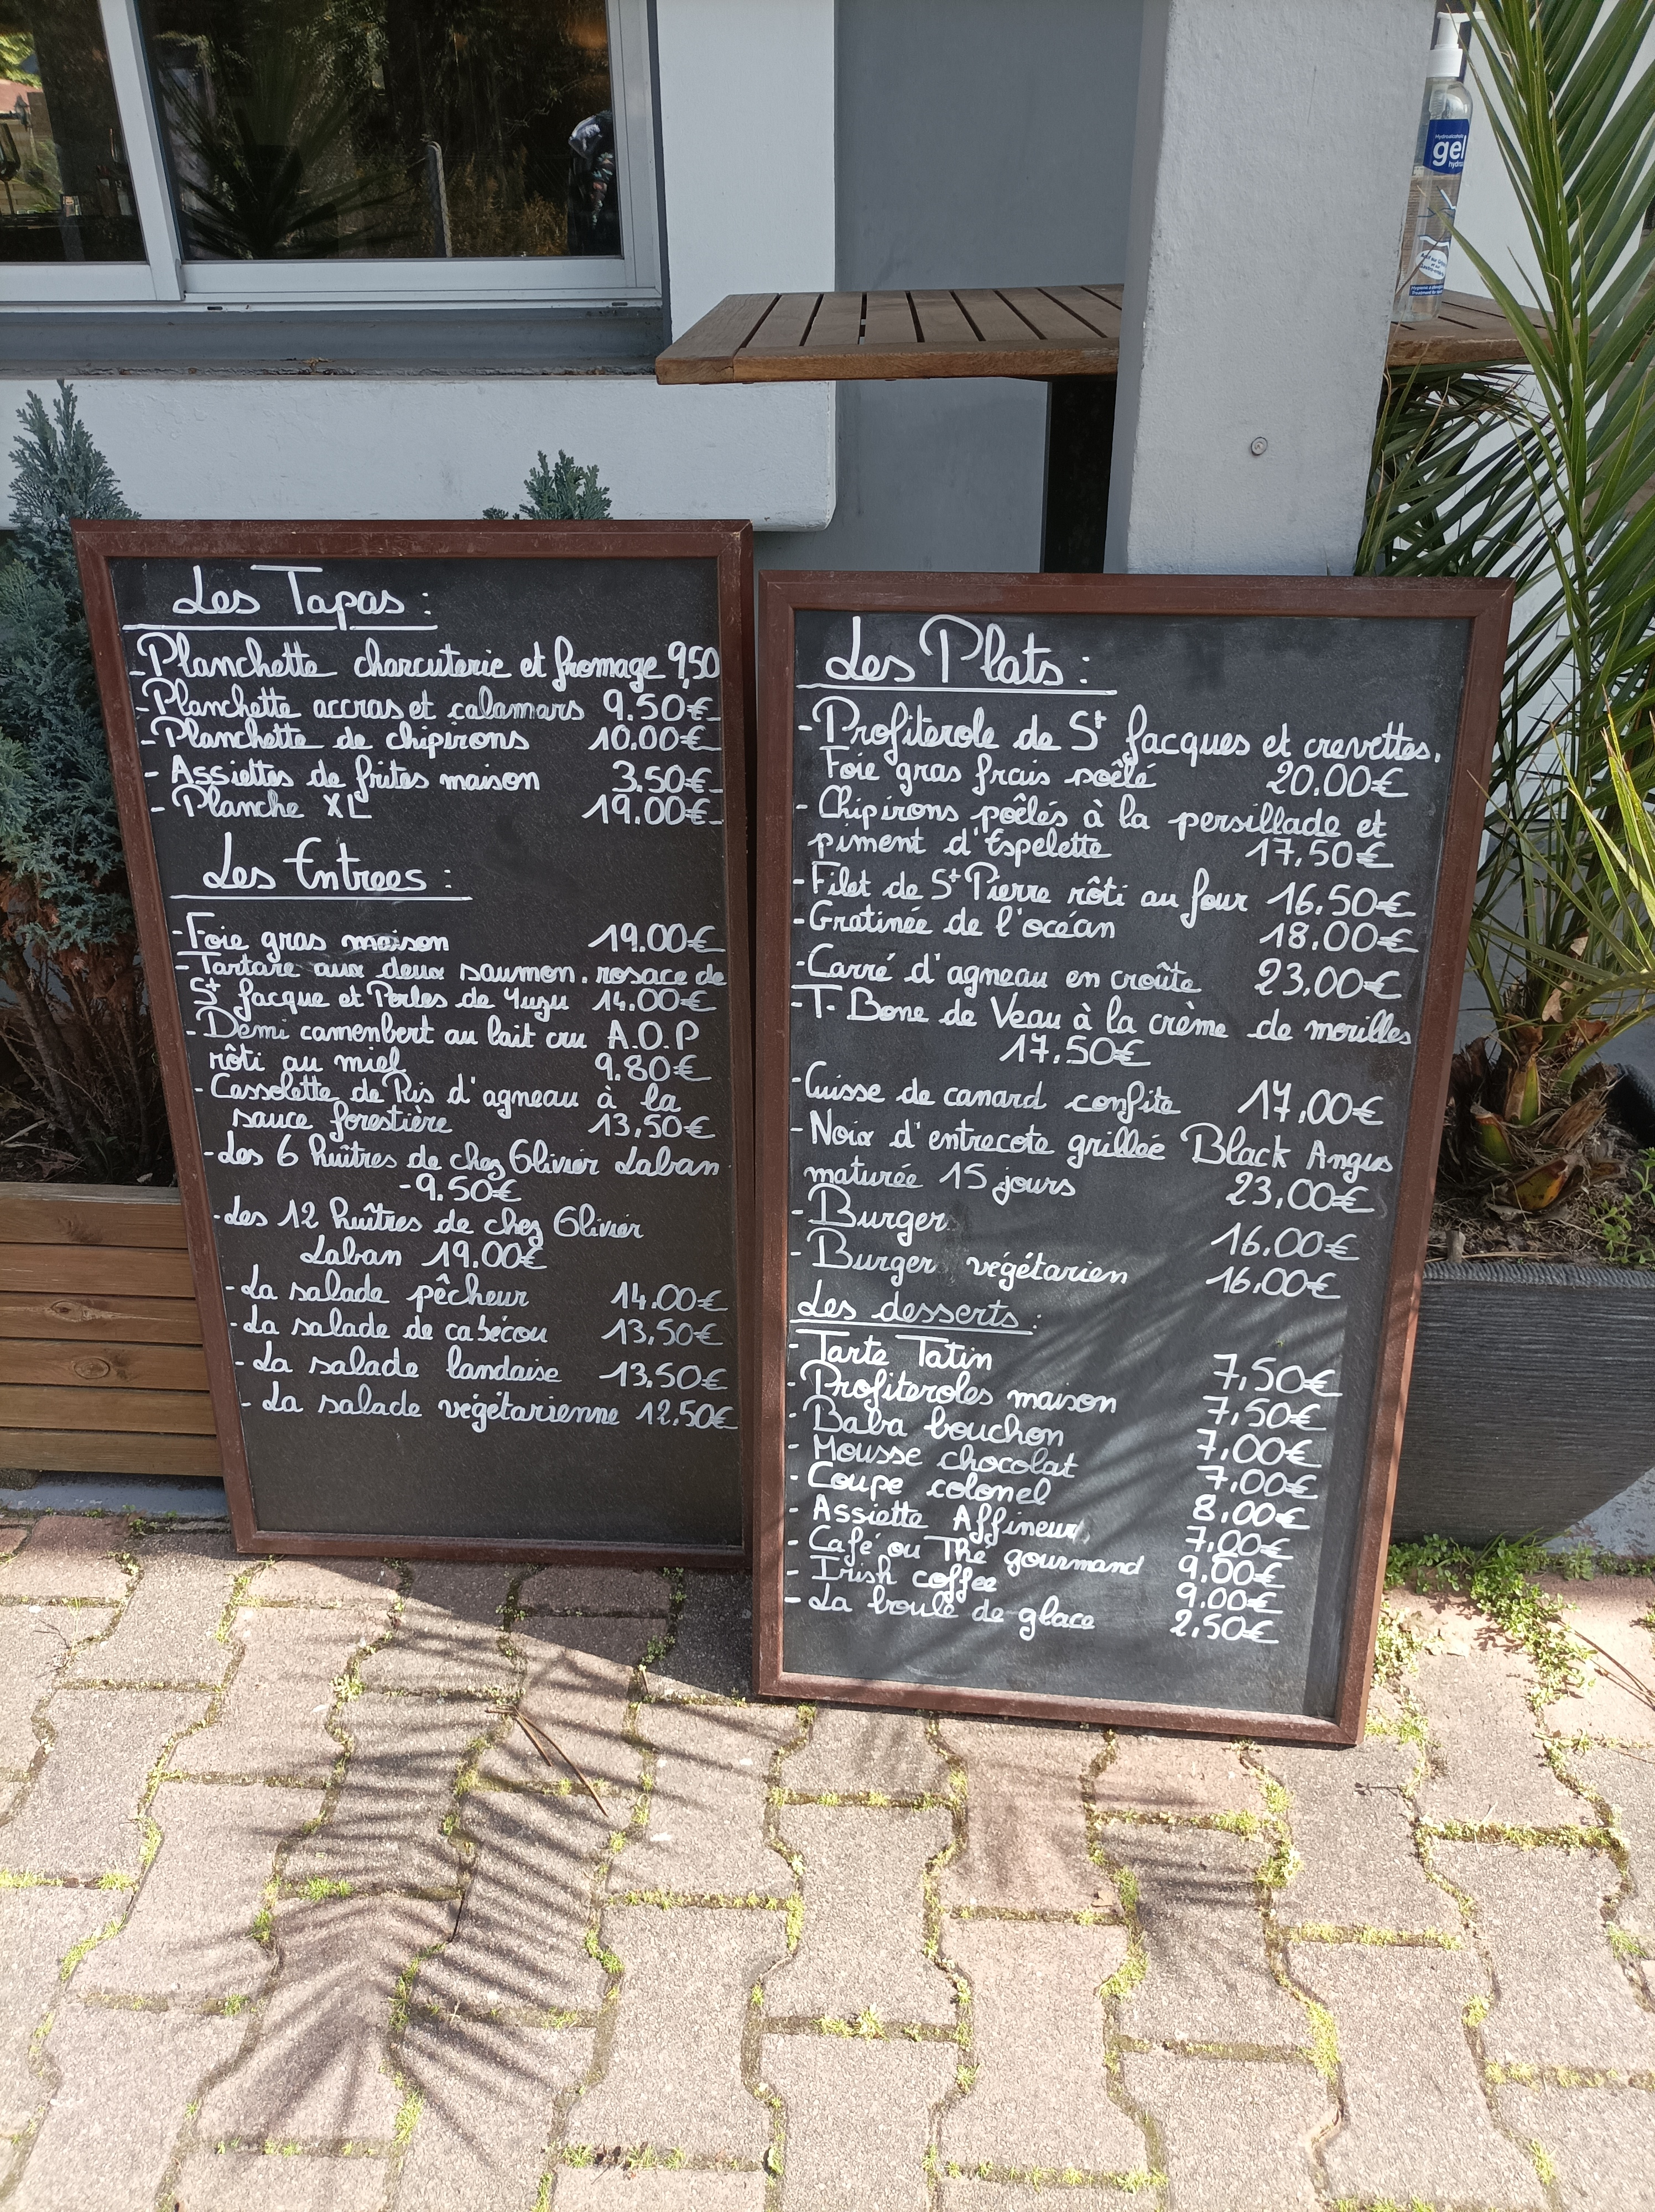 Hydroalcoolic
gel
hydro
Les Tapas :
- Planchette charcuterie et fromage 9,50
- Planchette accras et calamars 9.50€
- Planchette de chipirons 10.00€
- Assiettes de frites maison 3.50€
- Planche XL 19.00€
Les Entrees :
- Foie gras maison 19.00€
- Tartare aux deux saumon, rosace de
St Jacque et Perles de Yuzu 14.00€
- Demi camenbert au lait cru A.O.P
rôti au miel 9.80€
- Cassolette de Ris d'agneau à la
sauce forestière 13,50€
- Les 6 huîtres de chez Olivier Laban
- 9.50€
- Les 12 huîtres de chez Olivier
Laban 19.00€
- La salade pêcheur 14.00€
- La salade de cabécou 13,50€
- La salade landaise 13.50€
- La salade végétarienne 12,50€
Les Plats :
- Profiterole de St Jacques et crevettes,
Foie gras frais poêlé 20.00€
- Chipirons poêlés à la persillade et
piment d'Espelette 17,50€
- Filet de St Pierre rôti au four 16.50€
- Gratinée de l'océan 18.00€
- Carré d'agneau en croûte 23,00€
- T-Bone de Veau à la crème de morilles
17.50€
- Cuisse de canard confite 17,00€
- Noix d'entrecote grillée Black Angus
maturée 15 jours 23,00€
- Burger 16.00€
- Burger végétarien 16.00€
Les desserts :
- Tarte Tatin 7,50€
- Profiteroles maison 7,50€
- Baba bouchon 7,00€
- Mousse chocolat 7,00€
- Coupe colonel 8,00€
- Assiette Affineur 7,00€
- Café ou Thé gourmand 9,00€
- Irish coffee 9.00€
- La boule de glace 2,50€